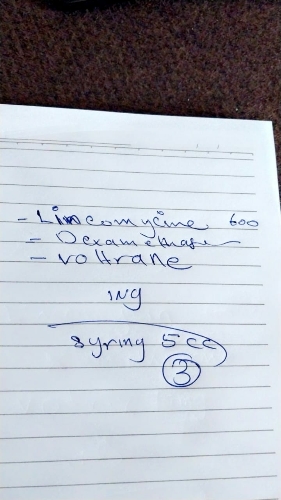 - Lincomycine 600
- Dexamethase
- voltrane
ing
syring 5cc
3